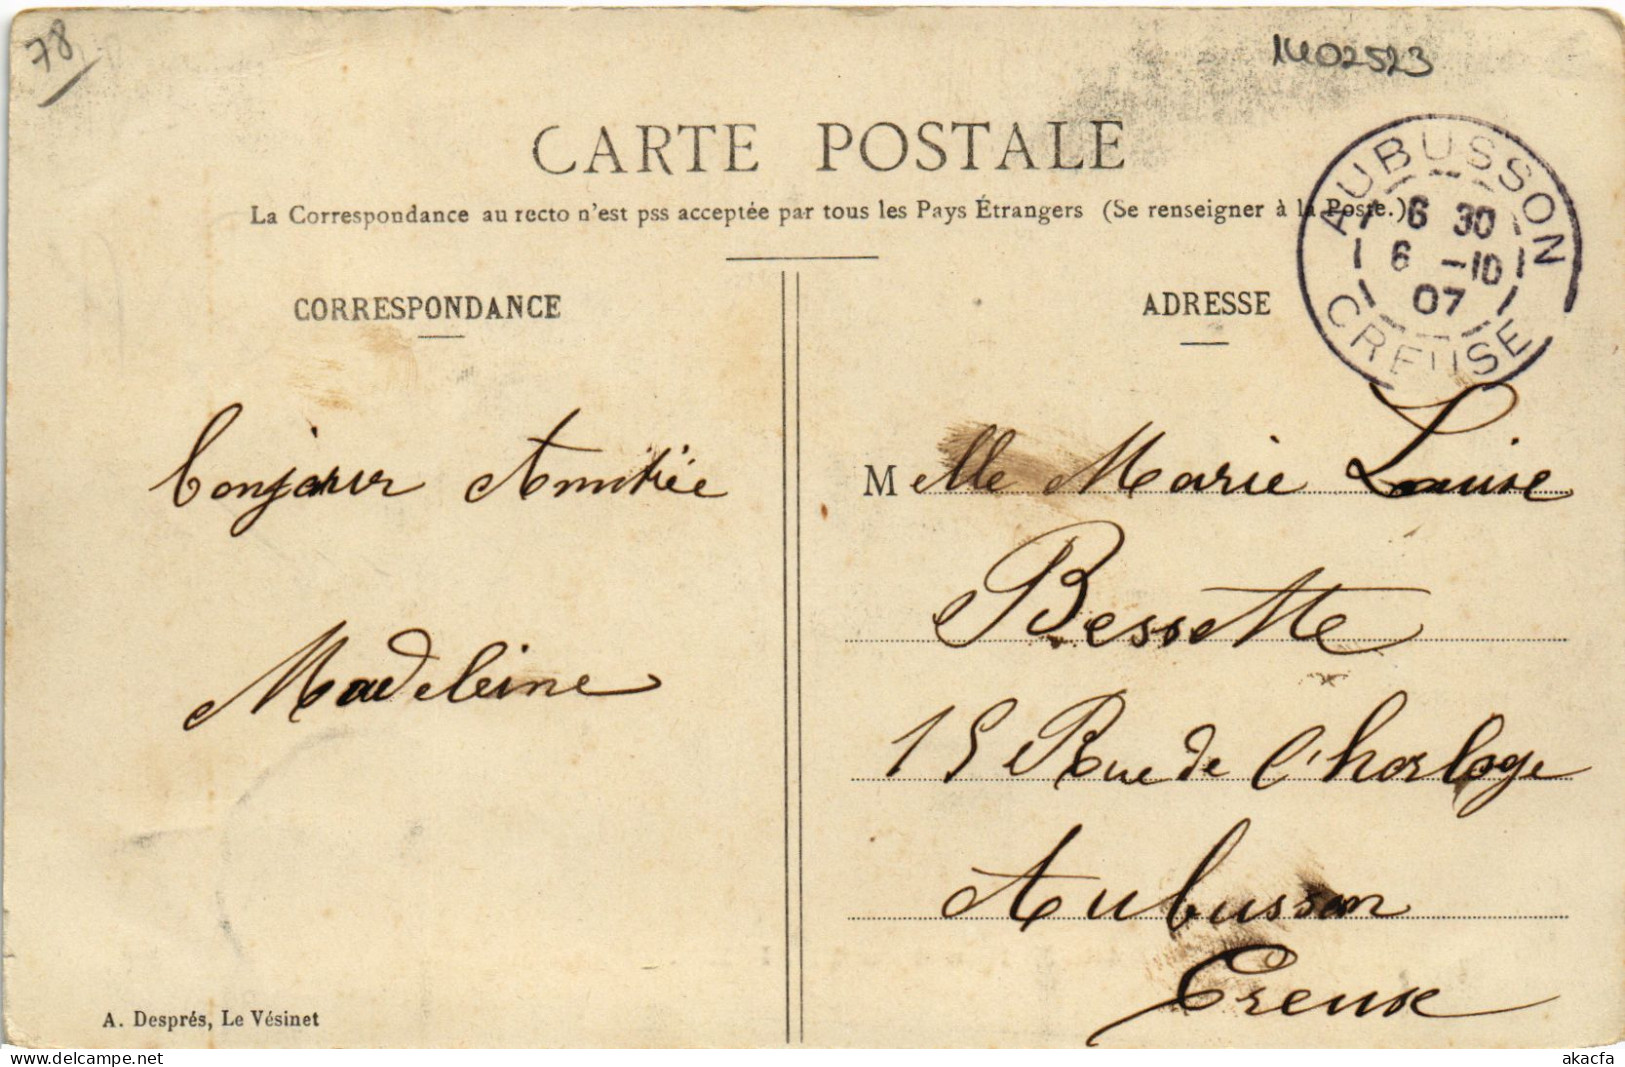 78
1402523
CARTE POSTALE
La Correspondance au recto n'est pss acceptée par tous les Pays Étrangers (Se renseigner à la Poste.)
AUBUSSON
6 30
6 -10
07
CREUSE
CORRESPONDANCE
ADRESSE
bonjour
Madeleine
Melle Marie Louise
Bessette
15 Rue de l'horloge
Aubusson
Creuse
A. Després, Le Vésinet
delcampe.net
akacfa